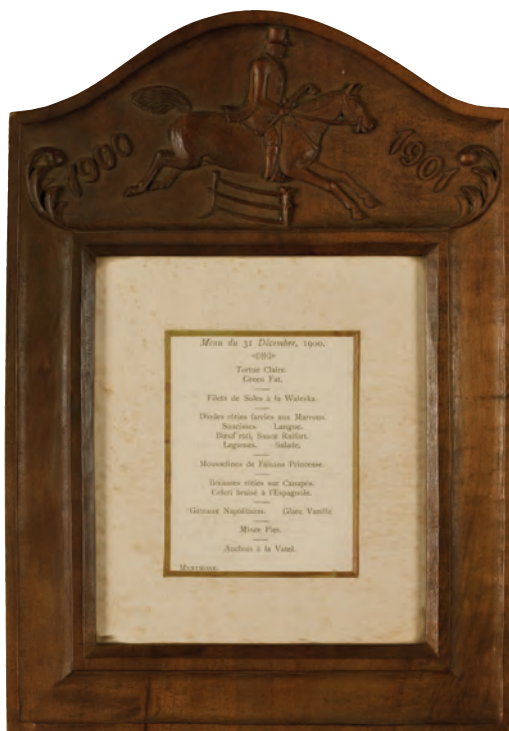 1900 1901
Menu du 31 Décembre, 1900.
Tortue Claire.
Green Fat.
Filets de Soles à la Waleska.
Dindes rôties farcies aux Marrons.
Saucisses. Langue.
Bœuf roti, Sauce Raifort.
Legumes. Salade.
Mousselines de Faisans Princesse.
Bécasses rôties sur Canapés.
Celeri braisé à l'Espagnole.
Gateaux Napolitains. Glace Vanille
Mince Pies.
Anchois à la Vatel.
MENTMORE.